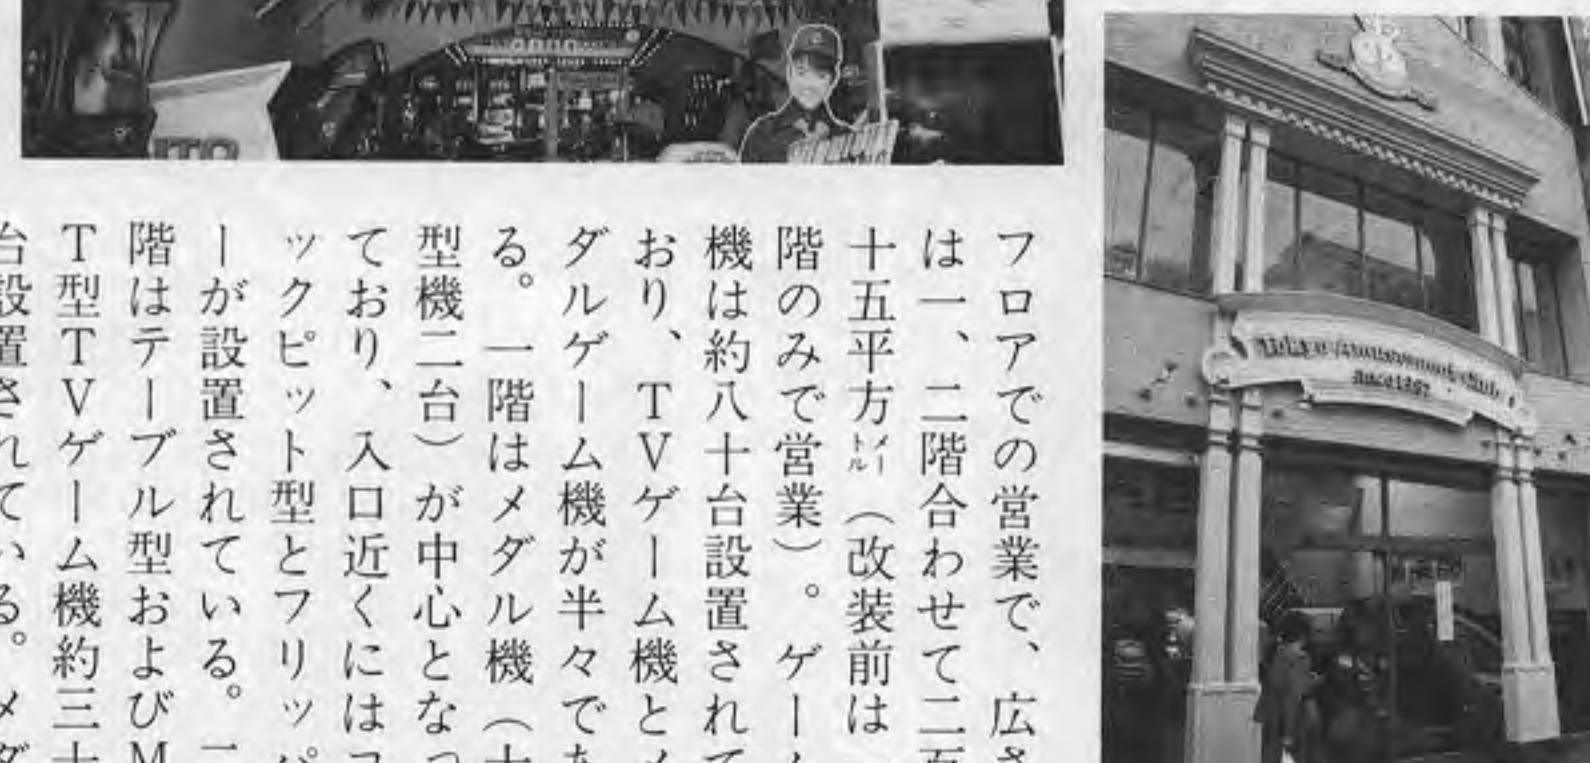 フロアでの営業で、広さ
は一、二階合わせて二百
十五平方メートル（改装前は一
階のみで営業）。ゲーム
機は約八十台設置されて
おり、TVゲーム機とメ
ダルゲーム機が半々であ
る。一階はメダル機（大
型機二台）が中心となっ
ており、入口近くにはコ
ックピット型とフリッパ
ーが設置されている。二
階はテーブル型およびM
T型TVゲーム機約三十
台設置されている。メダ
Tokyo Amusement Club
Since 1987